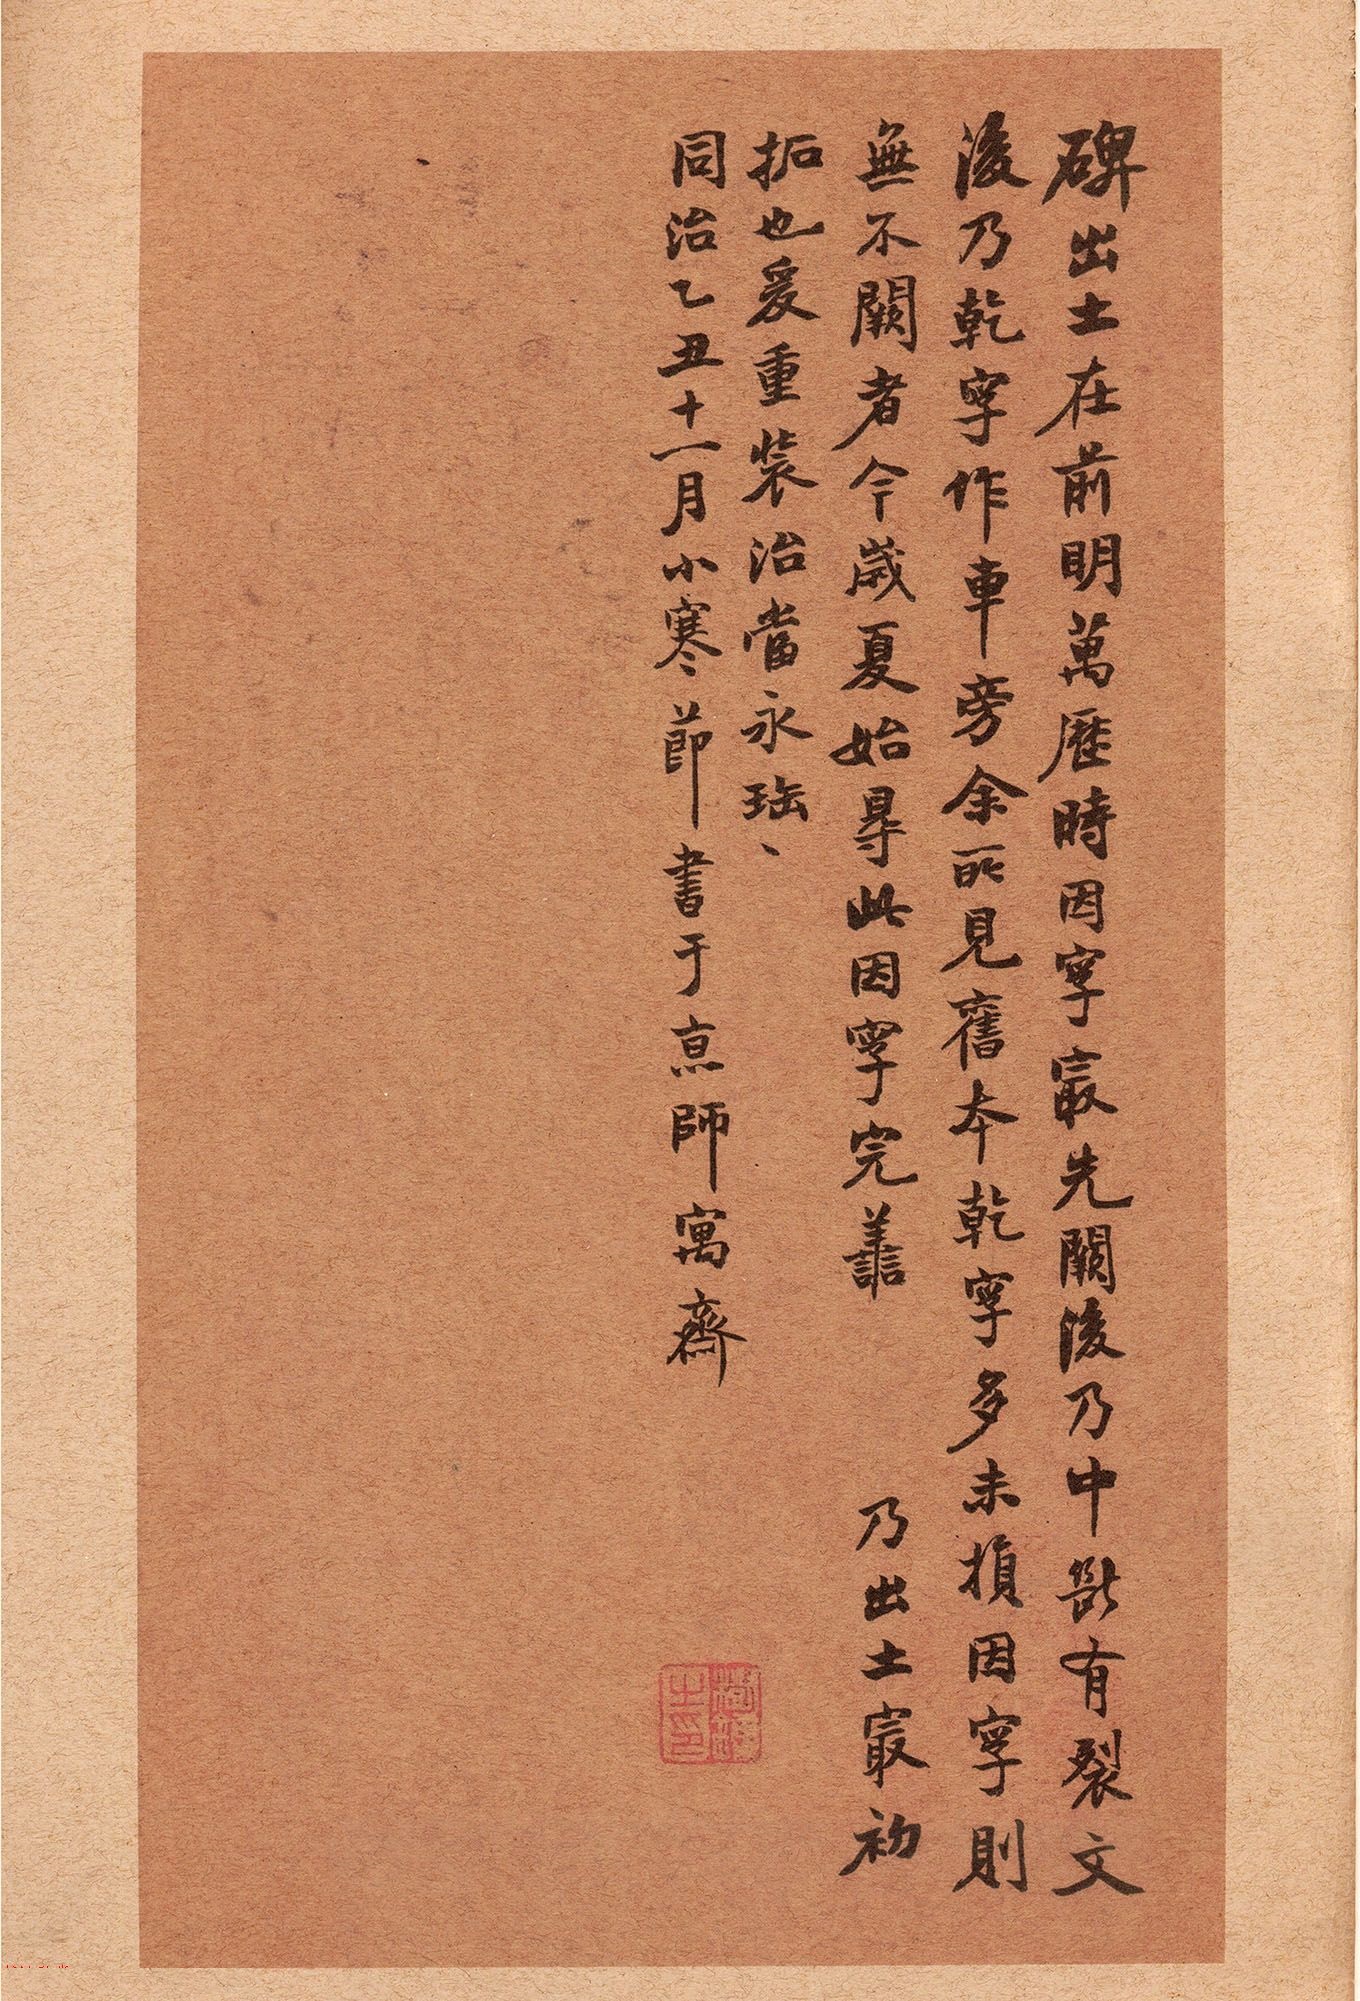 碑出土在前明萬歷時因字㝡先闕後乃中斷有裂文
後乃乾字作車旁余所見舊本乾字多未損因字則
無不闕者今歲夏始㝵此因字完譱　乃出土㝡初
拓也爰重裝治當永珤〻
同治乙丑十一月小寒節書于京師寓齋